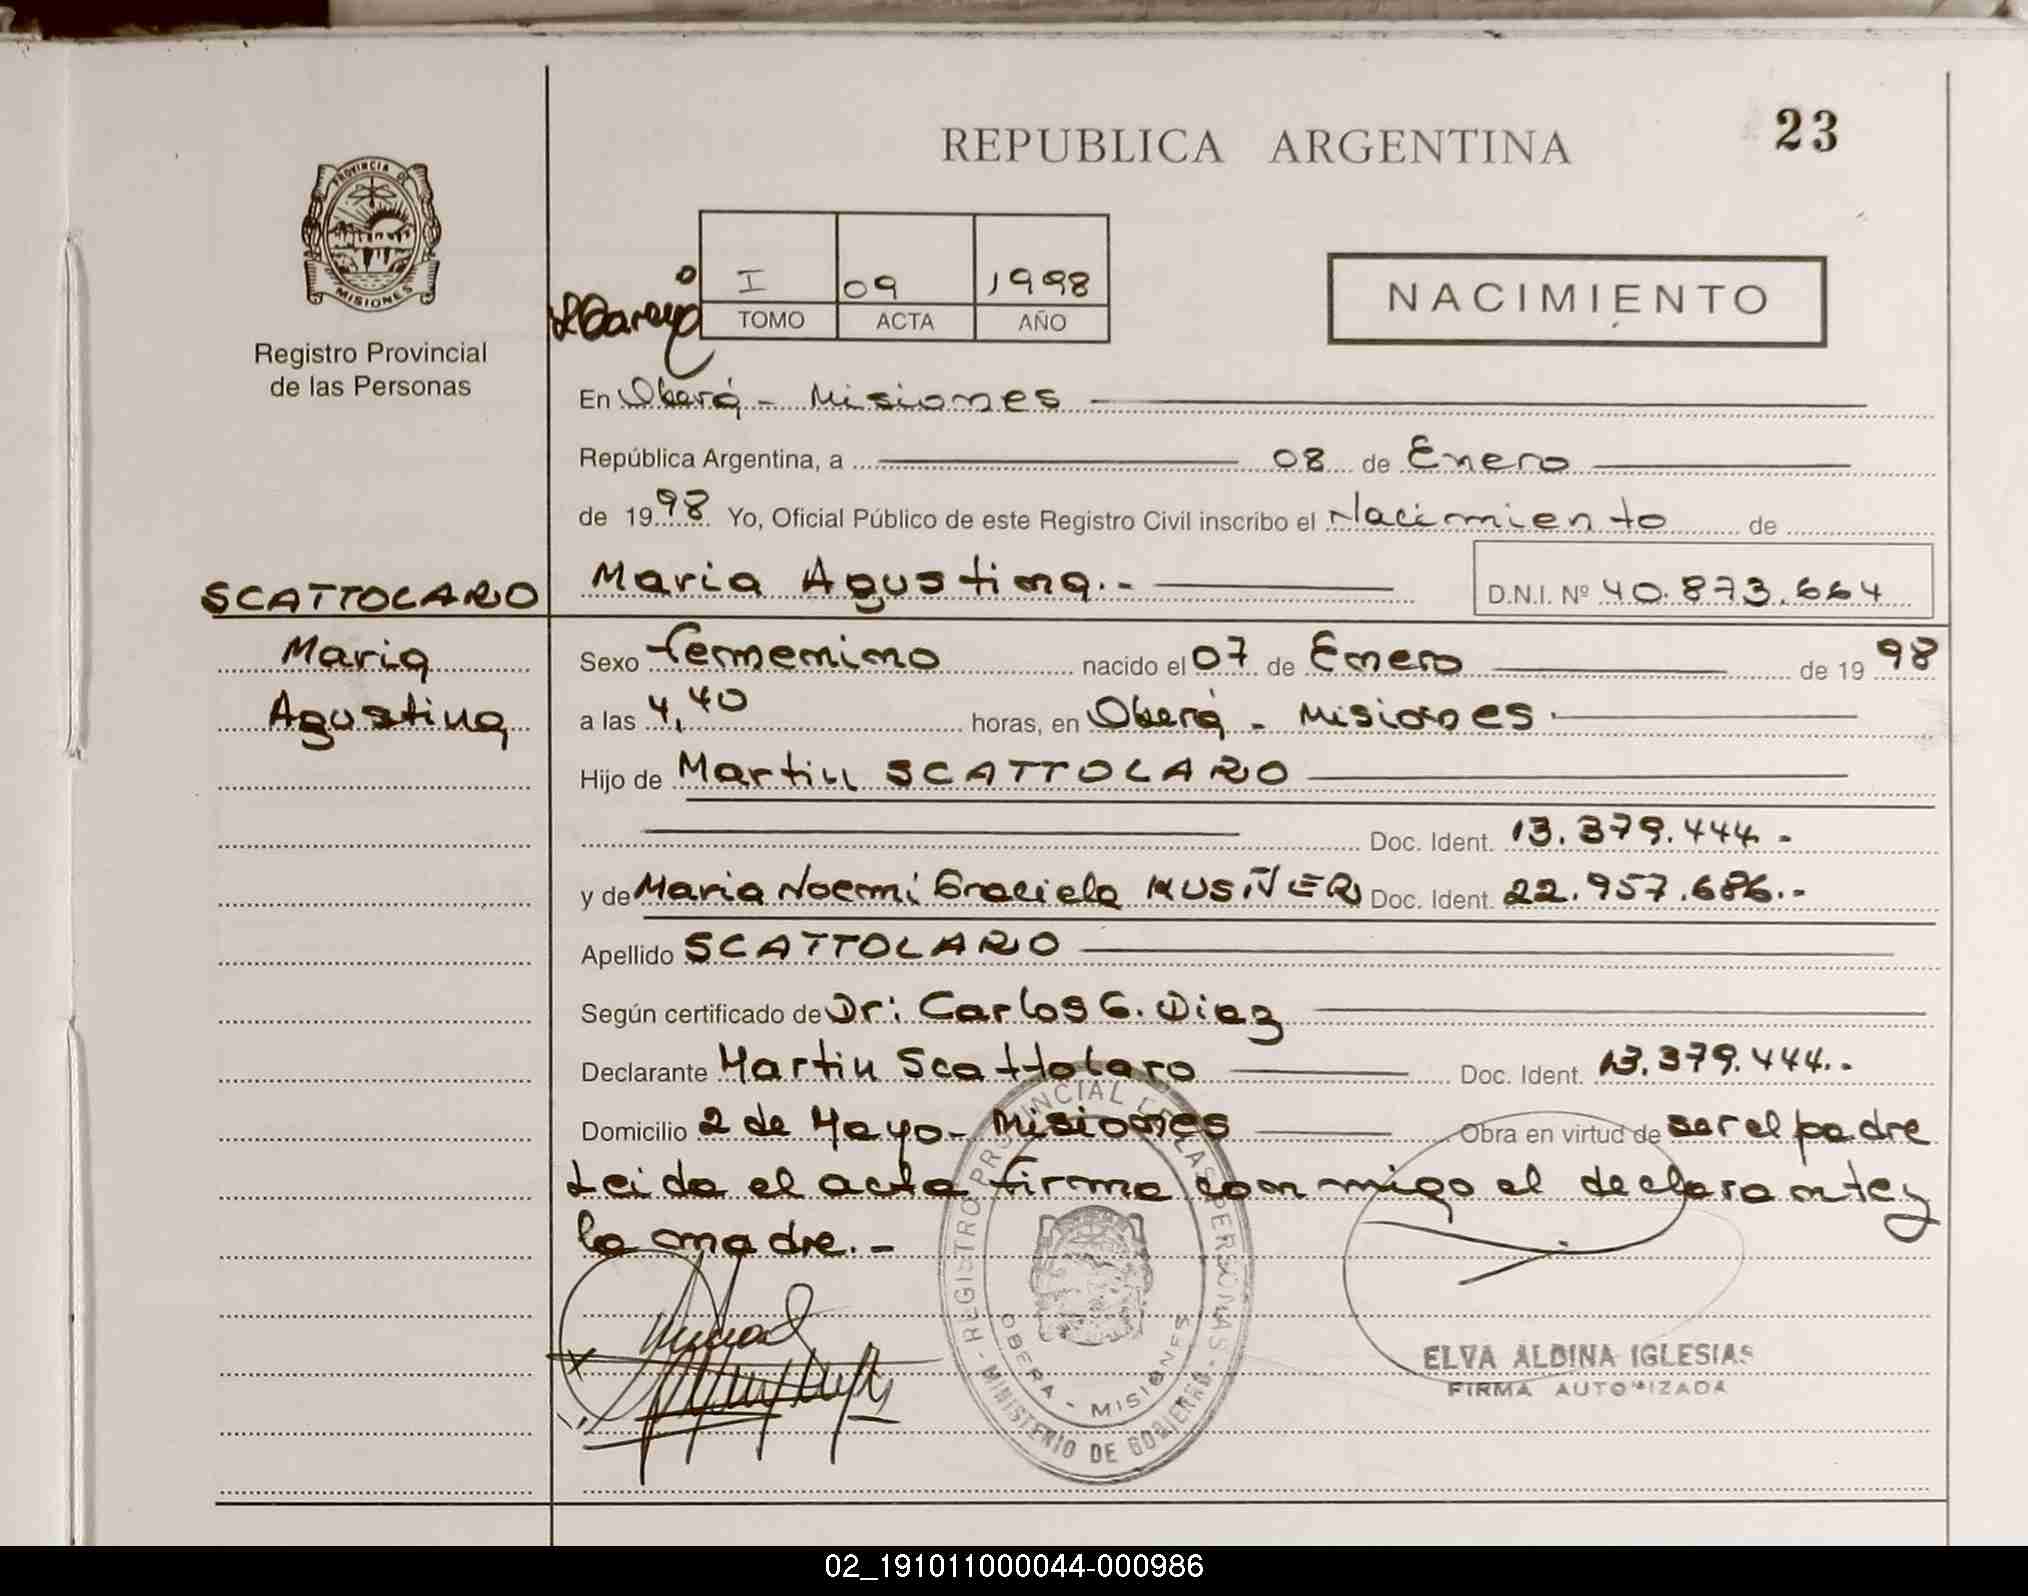 REPUBLICA ARGENTINA
23
PROVINCIA DE
MISIONES
Registro Provincial
de las Personas
I 09 1998
TOMO ACTA AÑO
NACIMIENTO
En Oberá - Misiones
República Argentina, a 08 de Enero
de 1998 Yo, Oficial Público de este Registro Civil inscribo el Nacimiento de
SCATTOLARO
Maria
Agustina
Maria Agustina.-
D.N.I. Nº 40.873.664
Sexo femenino nacido el 07 de Enero de 1998
a las 4,40 horas, en Oberá - Misiones.
Hijo de Martin SCATTOLARO
Doc. Ident. 13.379.444.-
y de Maria Noemi Graciela KUSÑER Doc. Ident. 22.957.686.-
Apellido SCATTOLARO
Según certificado de Dr: Carlos G. Diaz
Declarante Martin Scattolaro Doc. Ident. 13.379.444.-
Domicilio 2 de Mayo - Misiones Obra en virtud de ser el padre
Leida el acta firma conmigo el declarante y
la madre.-
REGISTRO PROVINCIAL DE LAS PERSONAS - MINISTERIO DE GOBIERNO -
OBERA - MISIONES
ELVA ALDINA IGLESIAS
FIRMA AUTORIZADA
02_191011000044-000986